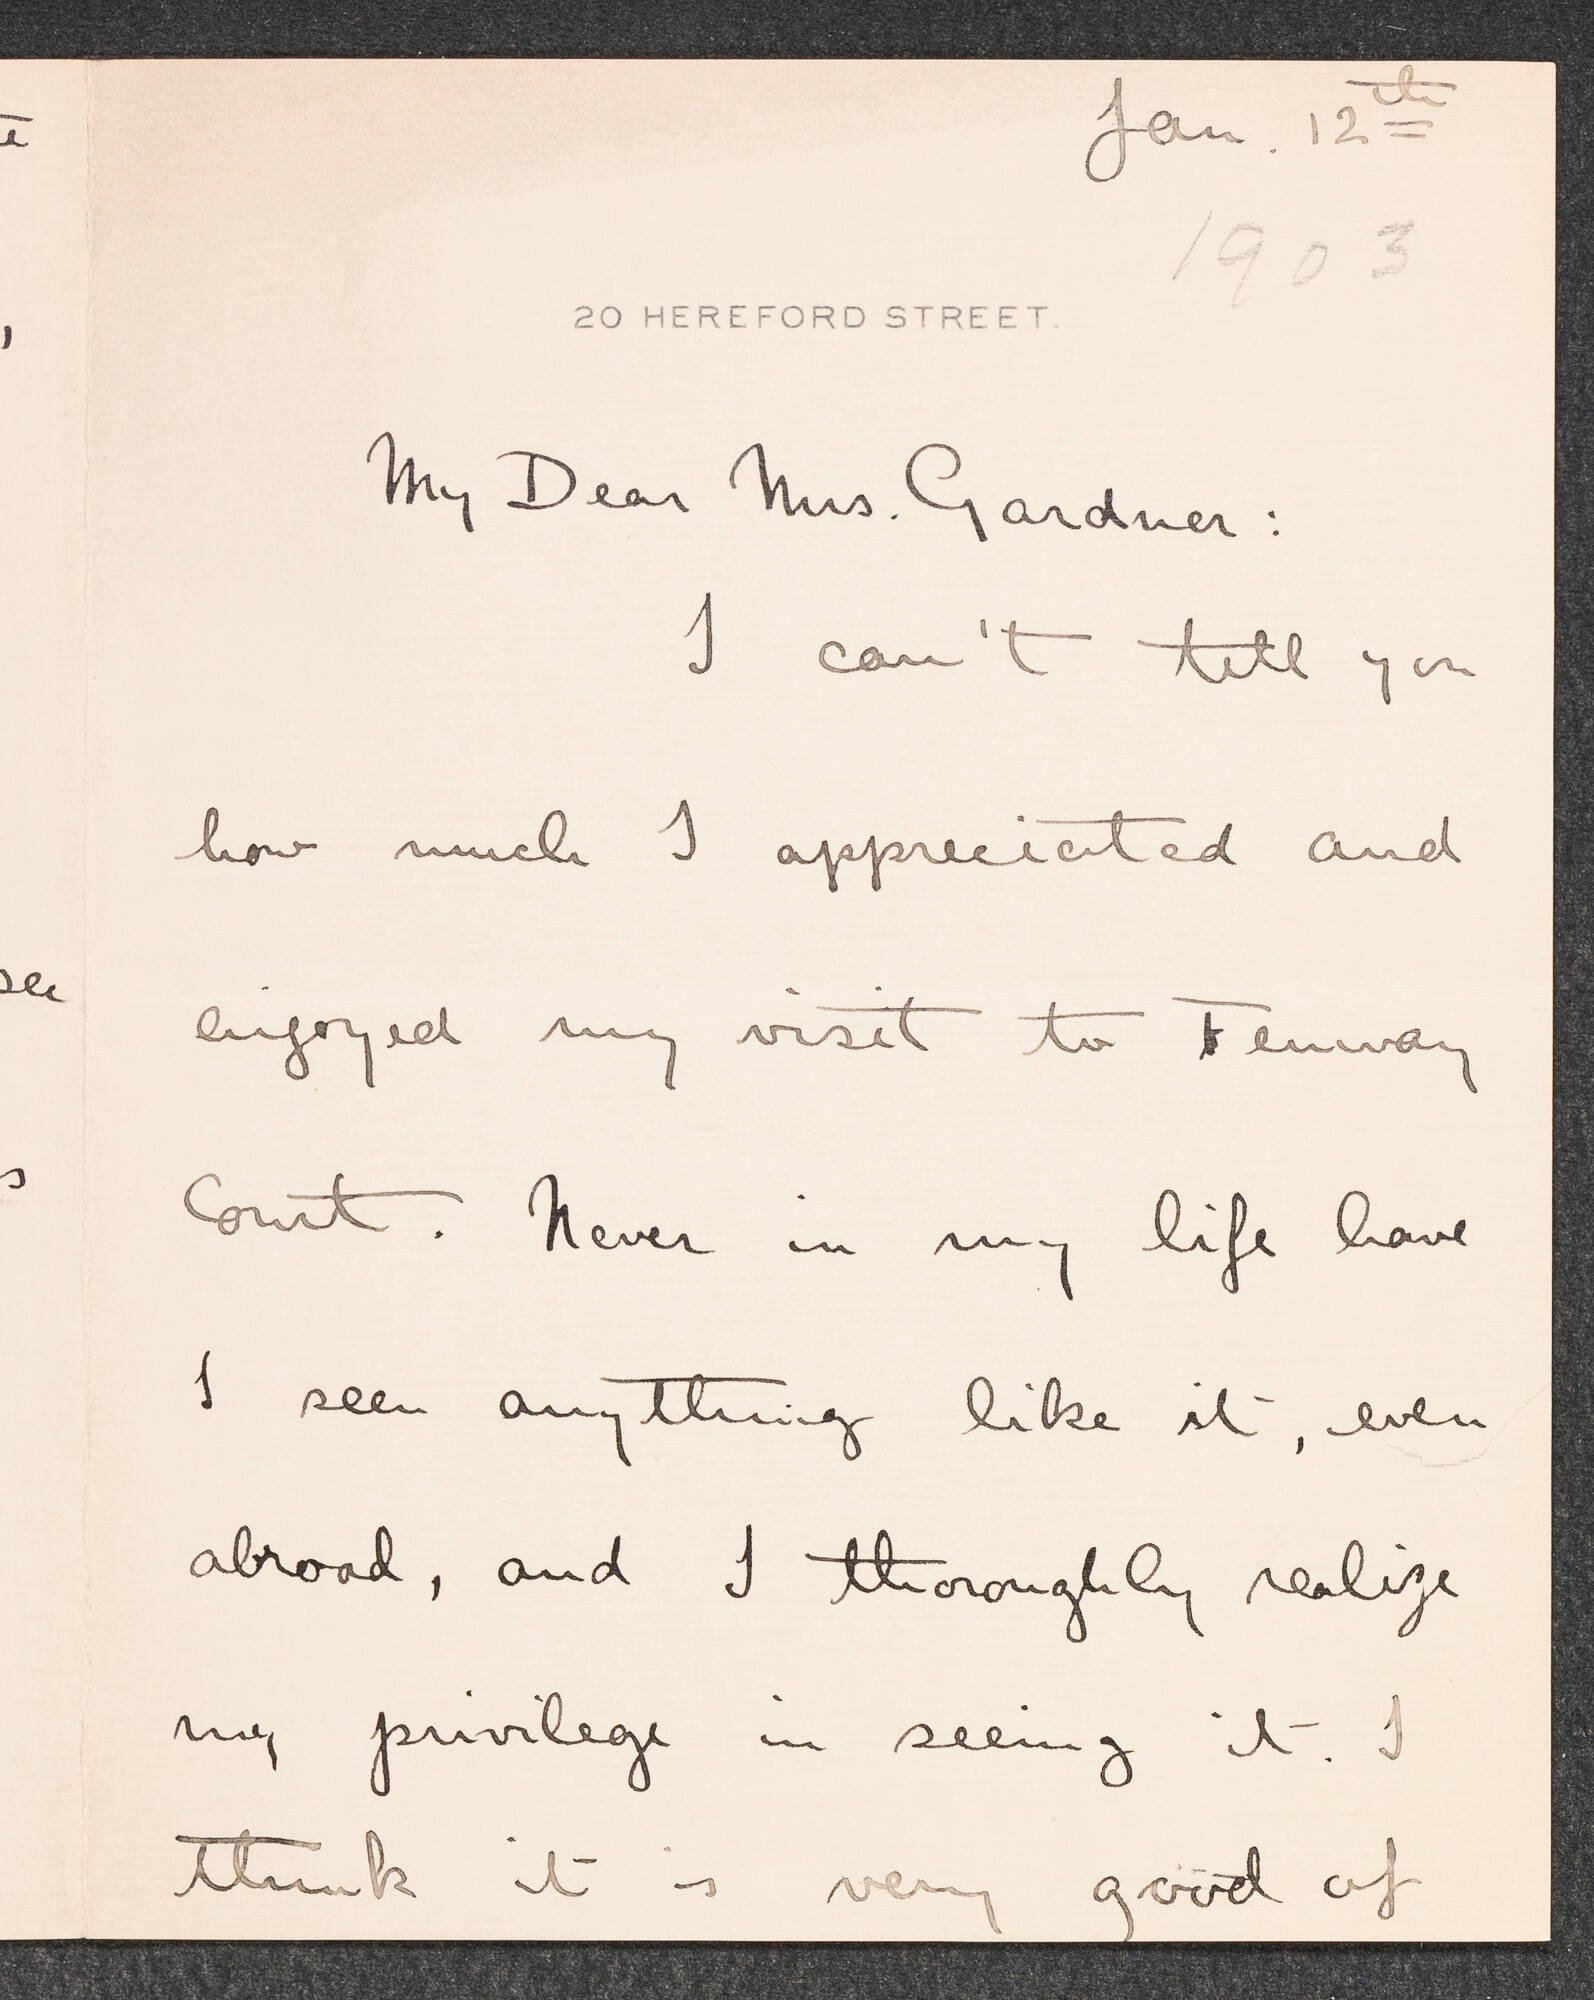 Jan. 12th
1903
20 HEREFORD STREET.
My Dear Mrs. Gardner:
I can't tell you
how much I appreciated and
enjoyed my visit to Fenway
Court. Never in my life have
I seen anything like it, even
abroad, and I thoroughly realize
my privilege in seeing it. I
think it is very good of